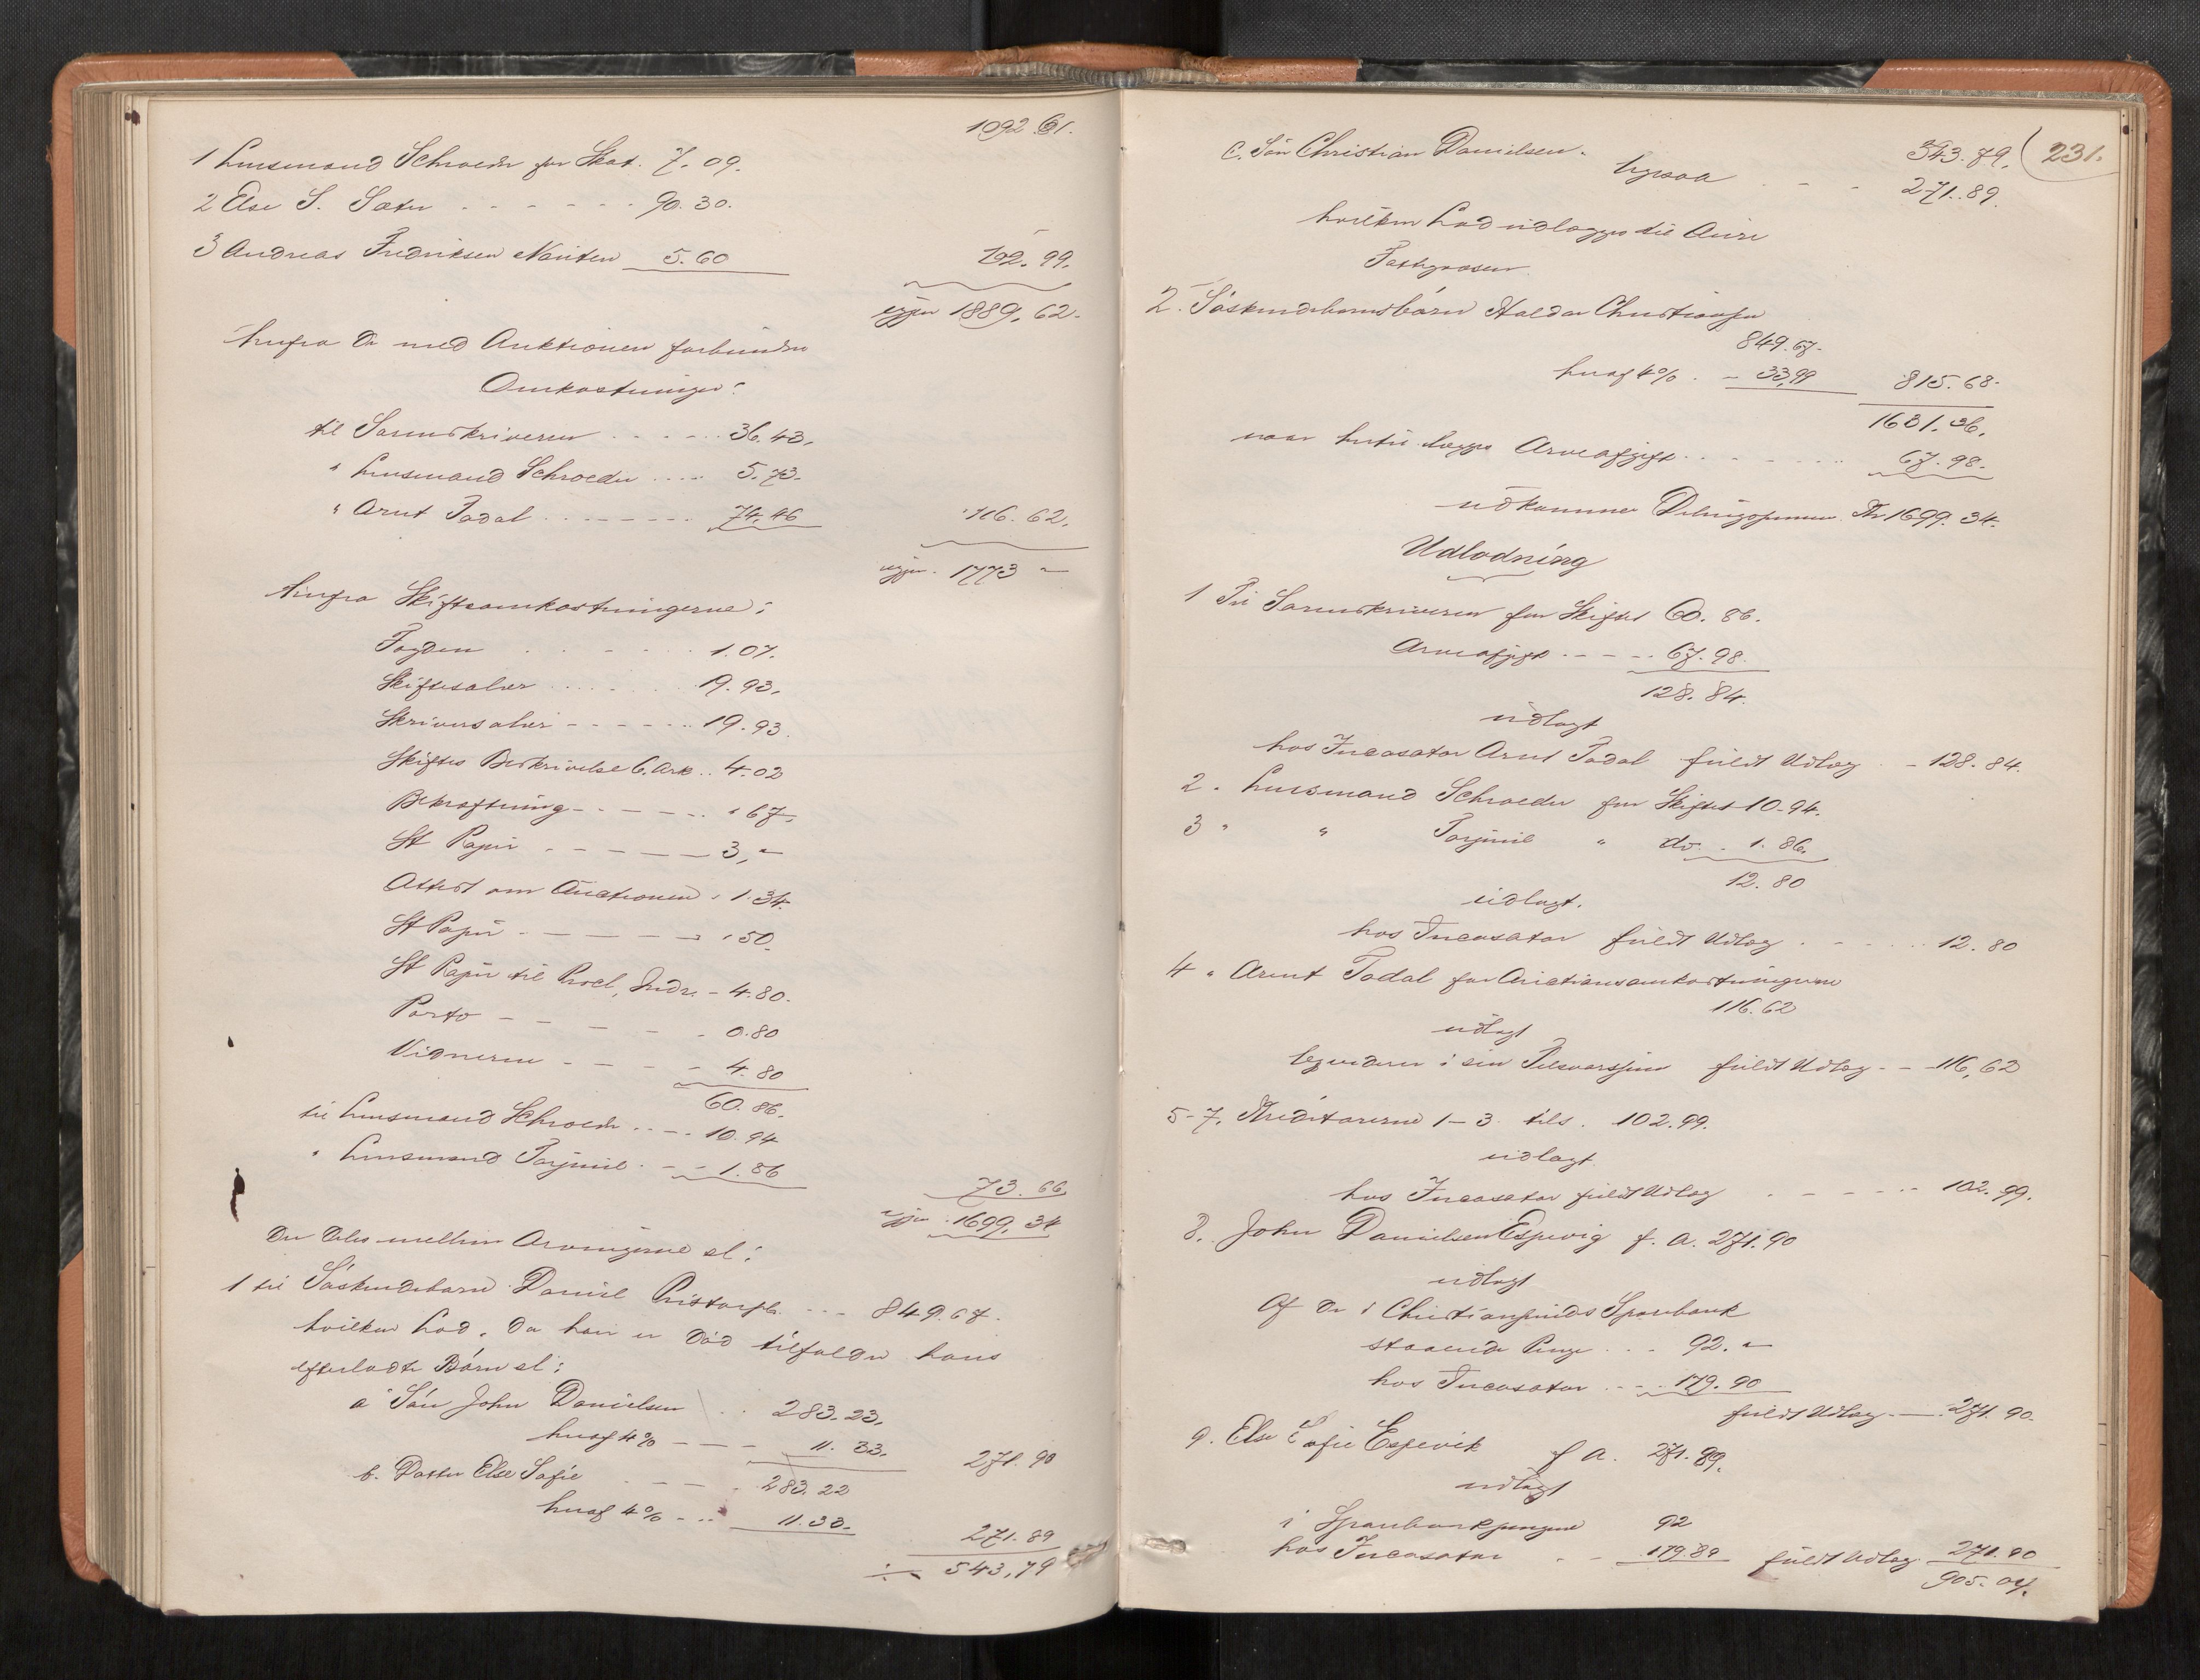 1092.61.
1 Lensmand Schroeder for Skat. 7.09.
2 Else S. Sæter - - - - - - 90.30.
3 Andreas Fredriksen Nauften 5.60 102.99.
igjen 1889.62.
herfra de med Auktionen forbundne
Omkostninger:
til Sorenskriveren - - - - - 36.43.
" Lensmand Schroeder .... 5.73.
" Arnt Todal - - - - - - 74.46 116.62.
igjen. 1773 "
herfra Skifteomkostningerne:
Fogden - - - - 1.07.
Skiftesalær . . . . . . 19.93.
Skriversalær - - - - - 19.93.
Skiftes Beskrivelse 6 Ark .. 4.02
Bekræftning - - - - - " 67.
St Papir - - - - - 3, "
Attest om Auctionen " 1.34.
St Papir - - - - - " 50.
St Papir til Procl, Indr. - 4.80.
Porto - - - - - 0.80
Vidnerne - - - - 4.80
60.86.
til Lensmand Schroeder . . - . 10.94
" Lensmand Torjuul . - - 1.86
73.66
igjen . 1699.34
Der deles mellem Arvingerne sl:
1 til Søskendebarn Daniel Christoph. - - - 849.67.
hvilken Lod, da han er død tilfalder hans
efterladte Børn sl:
a Søn John Danielsen . . 283.23.
heraf 4% - - - 11.33. 271.90
b. Datter Else Sofie - - - 283.22
heraf 4% - .. 11.33. 271.89
÷ 543,79
231.
c. Søn Christian Danielsen. 543.79.
ligesaa . - - - 271.89.
hvilken Lod udlægges til Aure
Fattigvæsen
2. Søskendebarnsbarn Haldor Christiansen
849.67.
heraf 4% . - 33,99 815.68.
1631.36.
naar hertil lægges Arveafgift . - - - - - 67.98.
udkommer Delingssummen Kr 1699.34.
Udlodning
1 Til Sorenskriveren for Skiftet 60.86.
Arveafgift - - - - . 67.98.
128.84.
udlagt
hos Incasator Arnt Todal fuldt Udlæg . - 128.84.
2 " Lensmand Schroeder for Skiftet 10.94.
3 " " Torjuul " do. . 1.86.
12.80
udlagt.
hos Incasator fuldt Udlæg . - - - . . 12.80
4 " Arnt Todal for Auctionsomkostningerne
116.62
udlagt
liqviderer i sin Tilsvarssum fuldt Udlæg - - 116,62
5-7. Kreditorerne 1-3 tils. 102.99.
udlagt
hos Incasator fuldt Udlæg . - - - - 102.99.
8. John Danielsen Espevig f. A. 271.90
udlagt
Af de i Christiansunds Sparebank
staaende Penge . . . 92. "
hos Incasator . . - . 179.90
fuldt Udlæg - - 271.90.
9. Else Sofie Espevik f A. 271.89.
udlagt
i Sparebankpengene 92
hos Incasator . - 179.89 fuldt Udlæg 271.90
905.04.